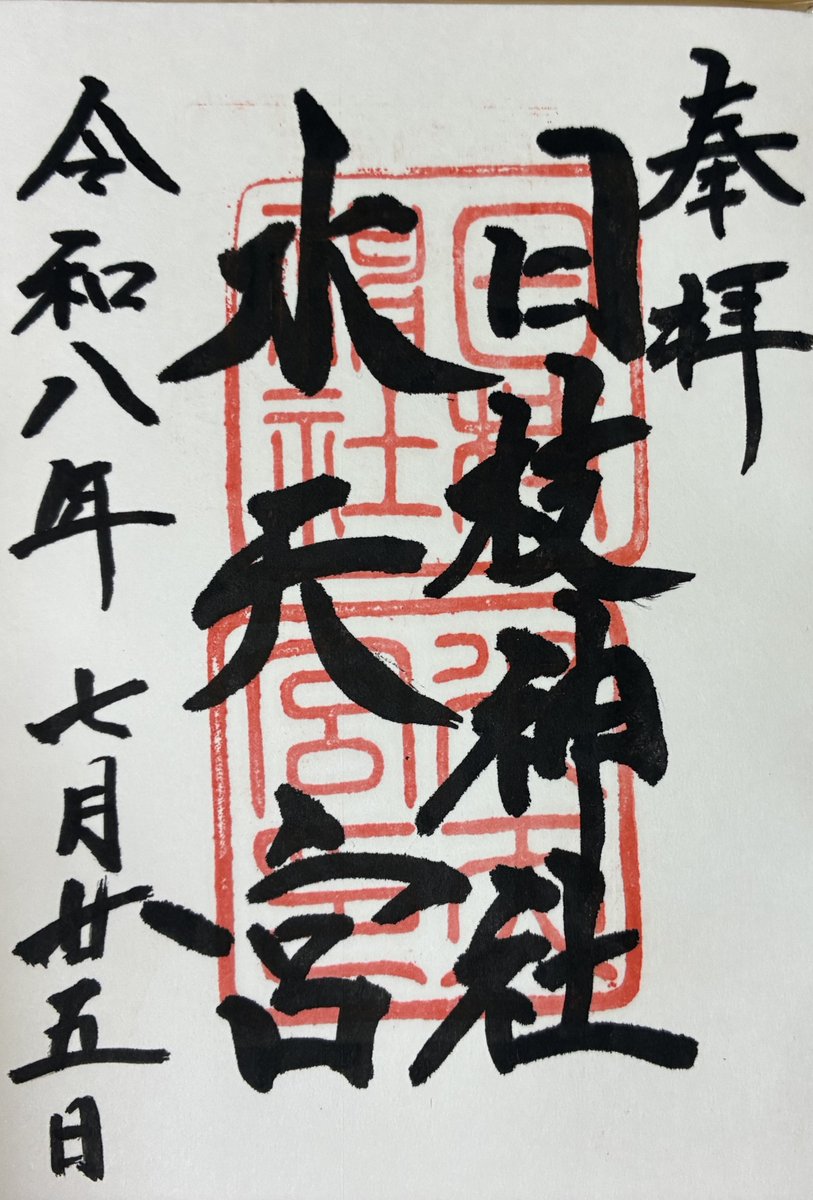 奉拝
日枝神社
水天宮
令和八年 七月廿五日